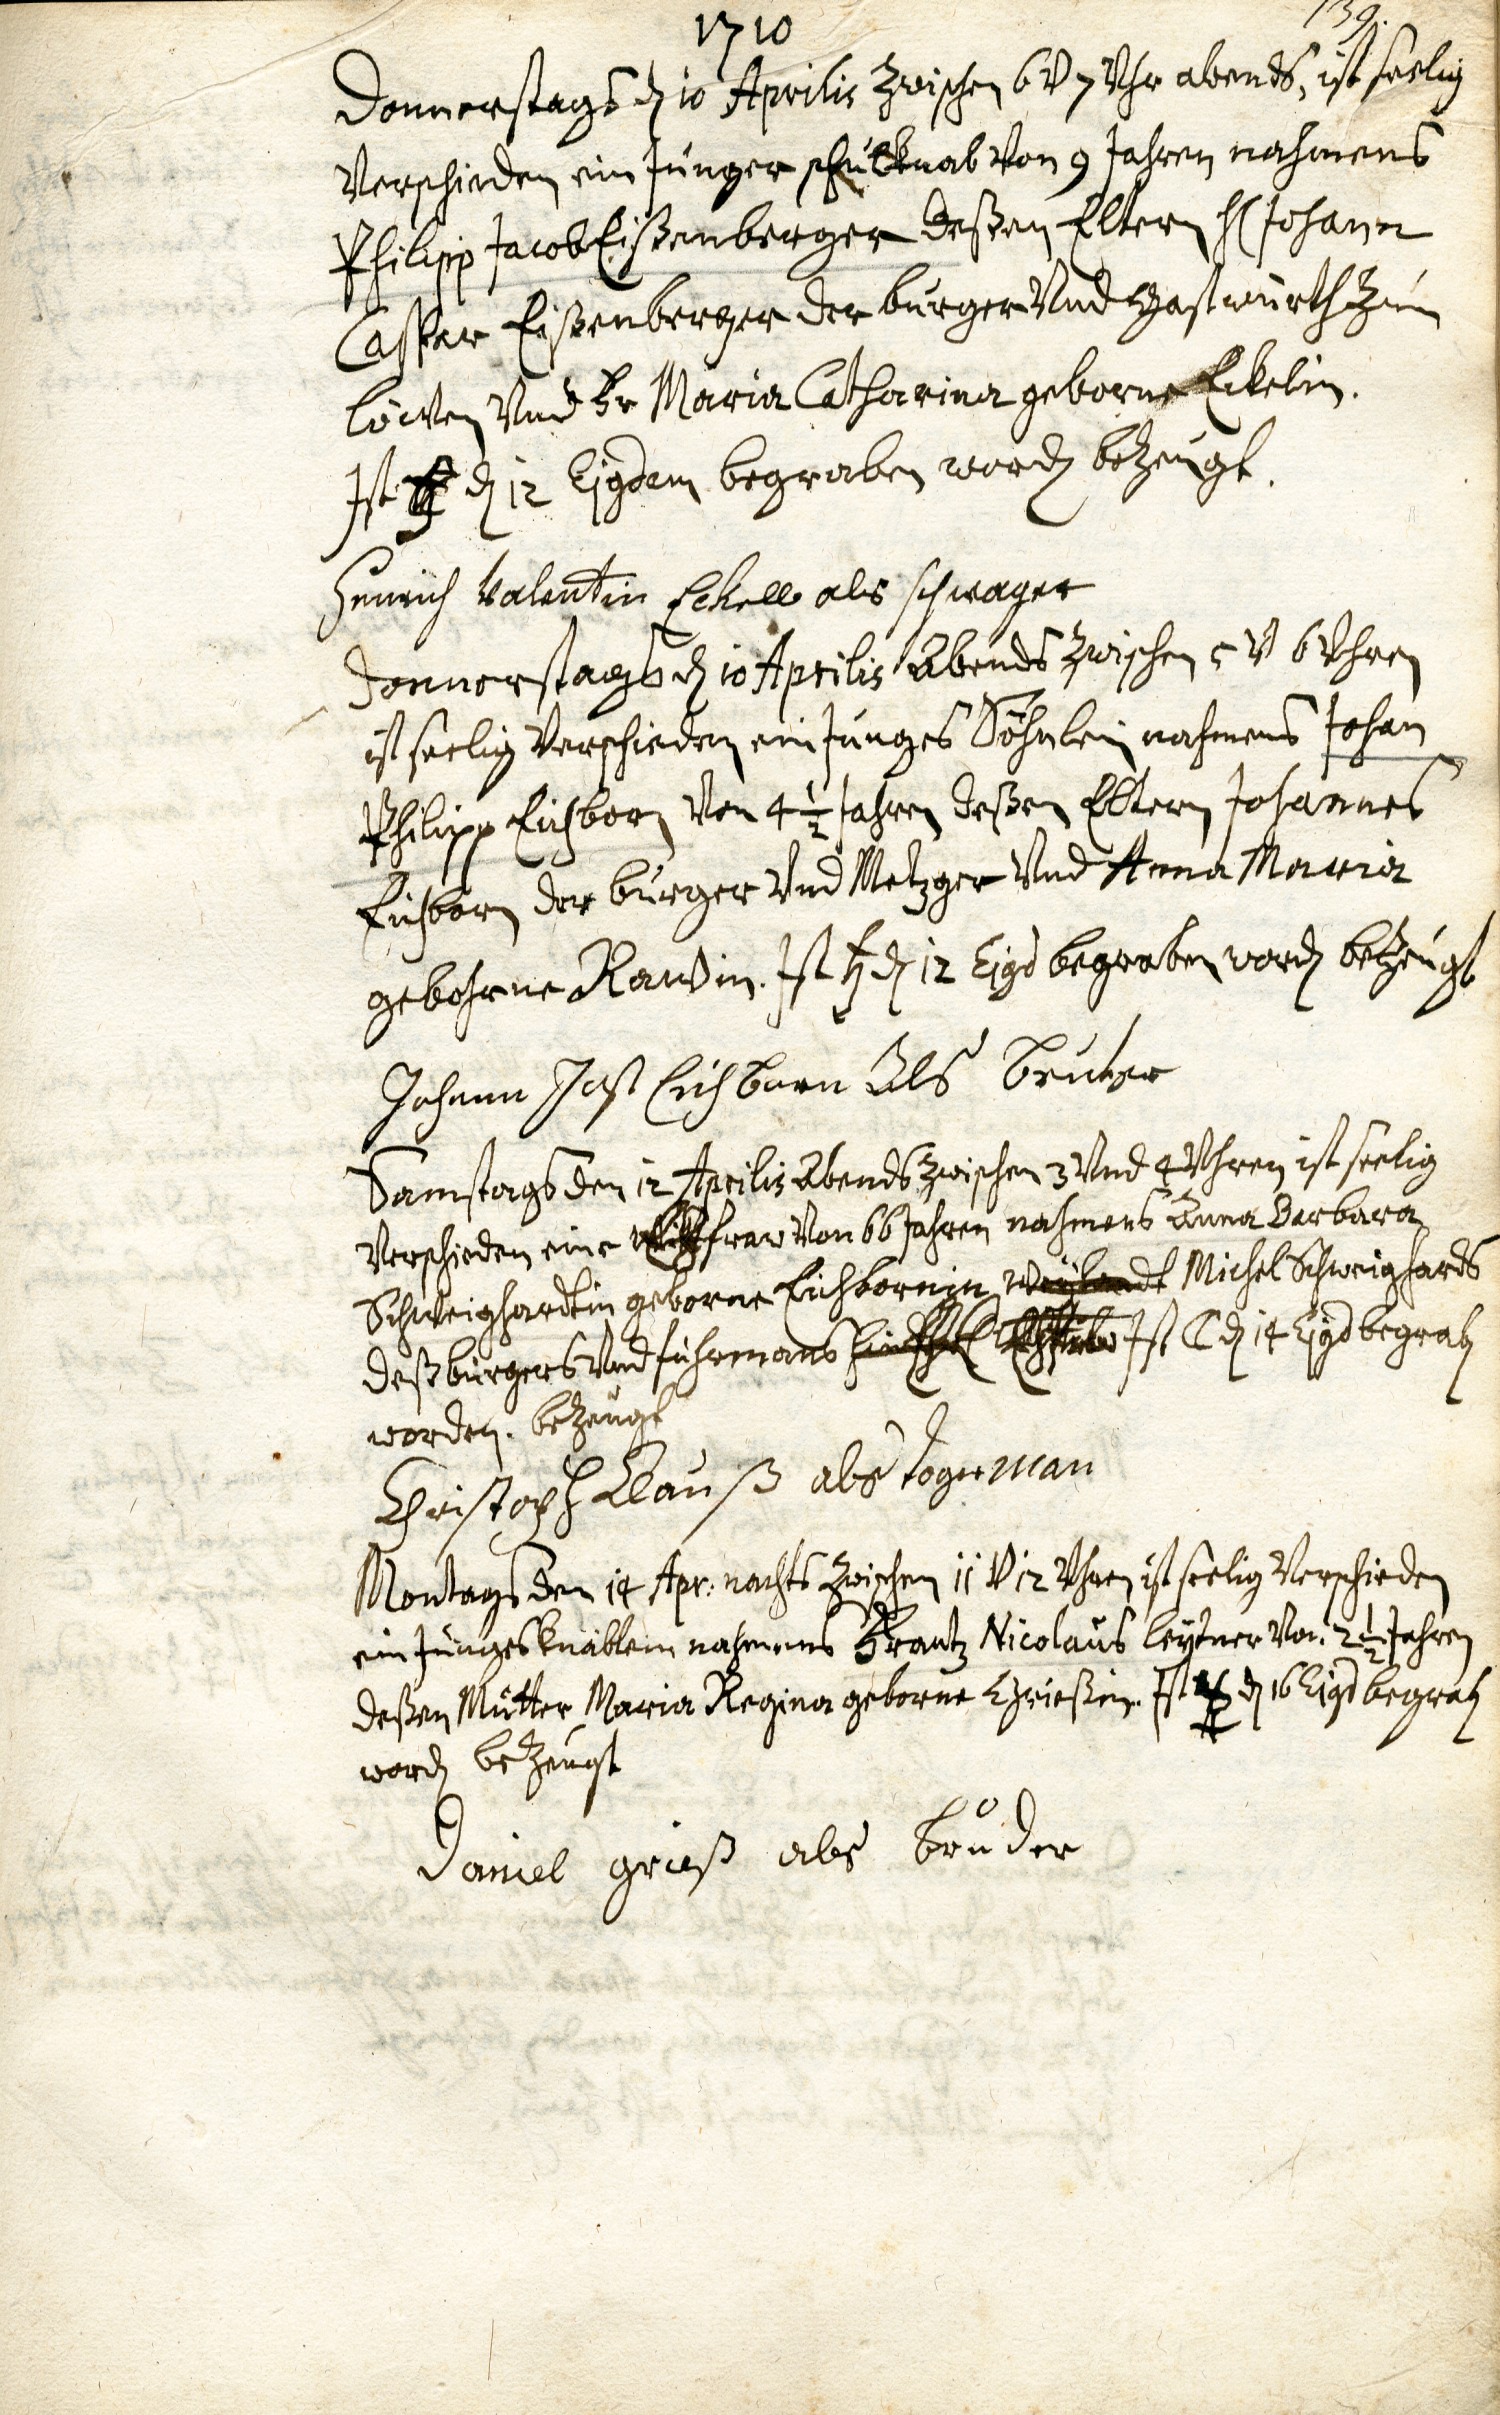 1710
139.
Donnerstags d 10 Aprilis zwischen 6 V 7 Uhr abends, ist seelig
Verschieden ein Junger schulknab Von 9 Jahren nahmens
Philipp Jacob Eißenberger deßen Eltern H Johann
Casper Eißenberger der burger Und Gastwürth zum
löwen Und Fr Maria Catharina geborne Eckelin.
Ist d 12 Ejgdem begraben word bezeugt.
Henrich Valentin Eckell als schwager
Donnerstags d 10 Aprilis Abends zwischen 5 V 6 Uhren
ist seelig Verschieden ein Junges Söhnlein nahmens Johan
Philipp Eichborn Von 4 1/2 Jahren deßen Eltern Johannes
Eichborn der burger Und Metzger Und Anna Maria
gebohrne Rauin. Ist ♄ d 12 Ejgd begraben word bezeugt
Johann Jost Eichborn Als bruder
Samstags den 12 Aprilis Abends zwischen 3 Und 4 Uhren ist seelig
Verschieden eine fraw Von 66 Jahren nahmens Anna Barbara
Schweighardtin geborne Eichbornin weylandt Michel Schweighards
deß burgers Und fuhrmans Ist ☾ d 14 Ejgd begrab
worden. bezeugt
Christoph Clauß als dogterman
Montags den 14 Apr: nachts zwischen 11 V 12 Uhren ist seelig Verschieden
ein Junges knäblein nahmens Frantz Nicolaus leytner Von 2 1/2 Jahren
deßen Mutter Maria Regina geborne Grießin. Ist ☿ d 16 Ejgd begrab
word bezeugt
Daniel grieß als bruder